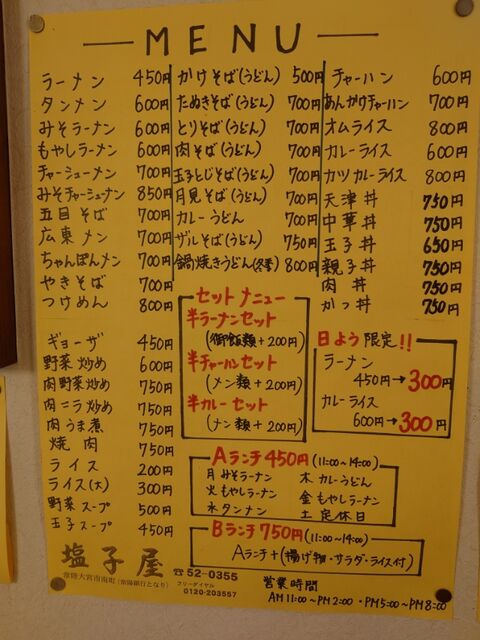 MENU
ラーメン 450円
タンメン 600円
みそラーメン 700円
もやしラーメン 700円
チャーシューメン 700円
みそチャーシューナン 850円
五目そば 700円
広東メン 700円
ちゃんぽんメン 700円
やきそば 700円
つけめん 800円
ギョーザ 450円
野菜炒め 600円
肉野菜炒め 750円
肉ニラ炒め 750円
肉うま煮 750円
焼肉 750円
ライス 200円
ライス(大) 300円
野菜スープ 500円
玉子スープ 450円
かけそば(うどん) 500円
たぬきそば(うどん) 700円
とりそば(うどん) 700円
肉そば(うどん) 700円
玉子とじそば(うどん) 700円
月見そば(うどん) 700円
カレーうどん 700円
ザルそば(うどん) 750円
鍋焼きうどん(冬季) 800円
チャーハン 600円
あんかけチャーハン 700円
オムライス 800円
カレーライス 600円
カツカレーライス 800円
天津丼 750円
中華丼 750円
玉子丼 650円
親子丼 750円
肉丼 750円
かつ丼 750円
セットメニュー
半ラーナンセット
(御飯類+200円)
半チャーハンセット
(メン類+200円)
半カレーセット
(ナン類+200円)
日よう限定!!
ラーメン
450円→300円
カレーライス
600円→300円
Aランチ450円(11:00~14:00)
月みそラーナン 木カレーうどん
火もやしラーナン 金もやしラーナン
水タンナン 土定休日
Bランチ750円(11:00~14:00)
Aランチ+(揚げ物・サラダ・ライス付)
塩子屋
常陸大宮市南町(常陽銀行となり)
☎52-0355
フリーダイヤル
0120-203557
営業時間
AM11:00~PM2:00・PM5:00~PM8:00